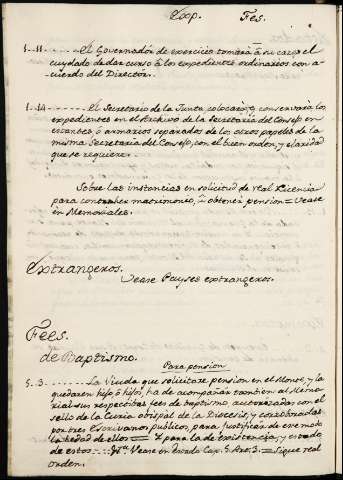 Exp. Fes.
1..11.......El Governador de exercicio tomará á su cargo el
cuydado de dar curso á los expedientes ordinarios con a-
cuerdo del Director.
1..14.......El Secretario de la Junta colocará, y conservará los
expedientes en el Archivo de la Secretaria del Consejo en
estantes ó armarios separados de los otros papeles de la
misma Secretaria del Consejo, con el buen orden, y claridad
que se requiere.
Sobre las instancias en solicitud de real Licencia
para contraher matrimonio, ú obtener pension = Vease
en Memoriales.
Extrangeros.
Vease Payses extrangeros.
Fees.
de Baptismo.
Para pension
5..3.......La Viuda que solicitare pension en el Monte, y la
quedaren hijo ó hijos, ha de acompañar tambien al Memo-
rial sus respectibas fees de baptismo autorizadas con el
sello de la Curia obispal de la Diocesis, y corroboradas
por tres Escrivanos publicos, para justificar de ese modo
la hedad de ellos = Y para la de existencia, y estado
de estos Vease en Estado Cap. 5. Art. 3. = Sigue real
orden.